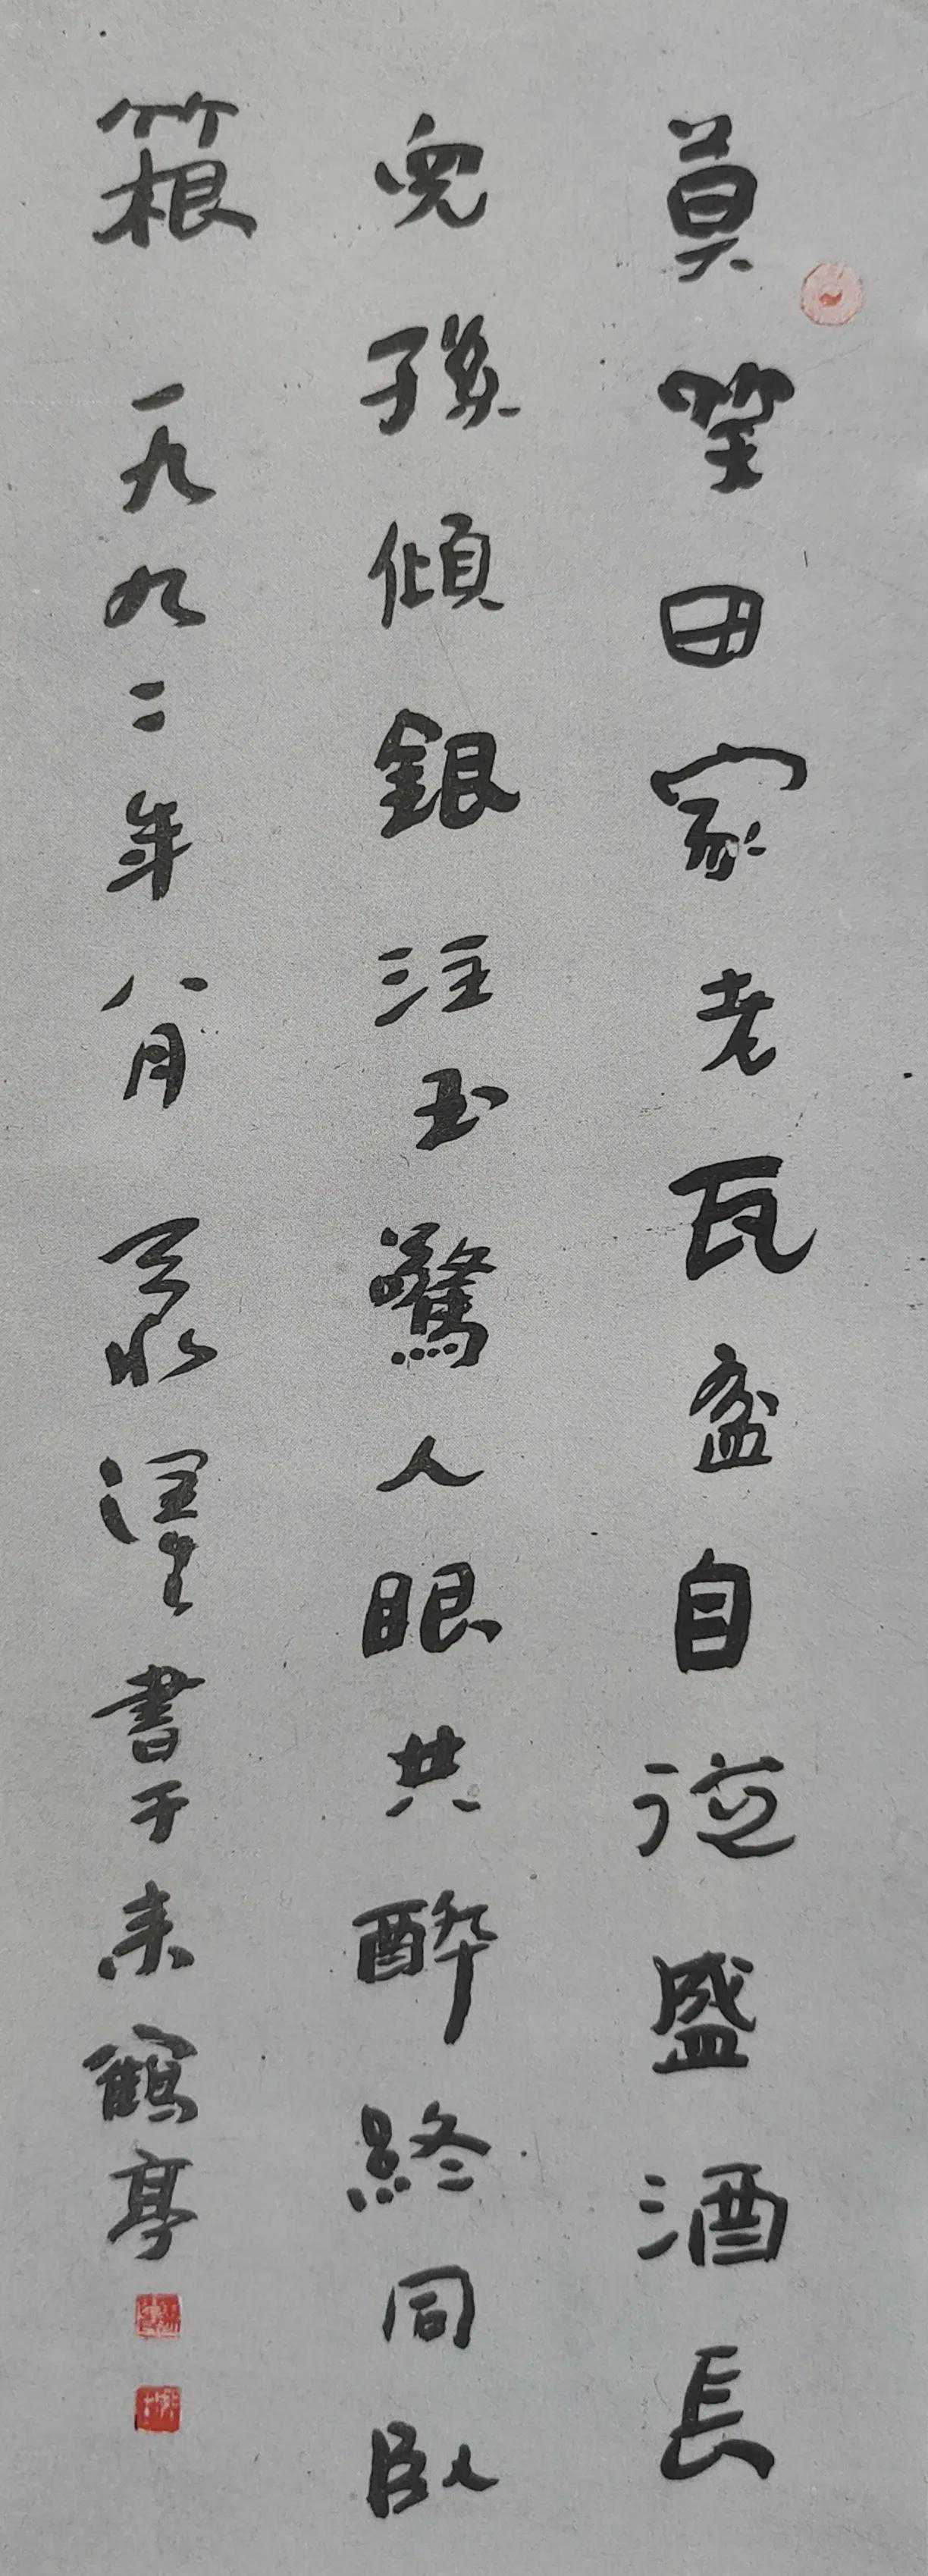 莫笑田家老瓦盆自從盛酒長
兒孫傾銀注玉驚人眼共醉終同臥
竹根 一九九二年八月 書于來鶴亭